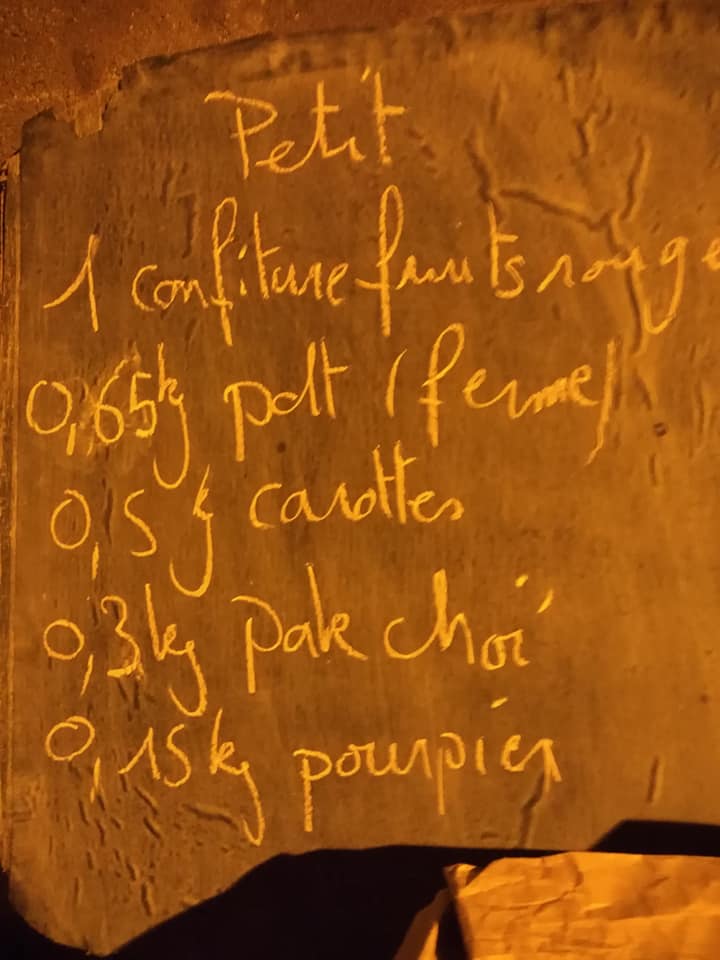 Petit
1 confiture fruits rouge
0,65kg pdt (ferme)
0,5 kg carottes
0,3kg pak choï
0,15kg pourpier